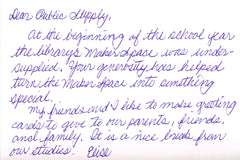 Dear Public Supply,
At the beginning of the school year
the library's Maker Space was under-
supplied. Your generosity has helped
turn the Maker Space into something
special.
My friends and I like to make greeting
cards to give to our parents, friends,
and family. It is a nice break from
our studies. Elise